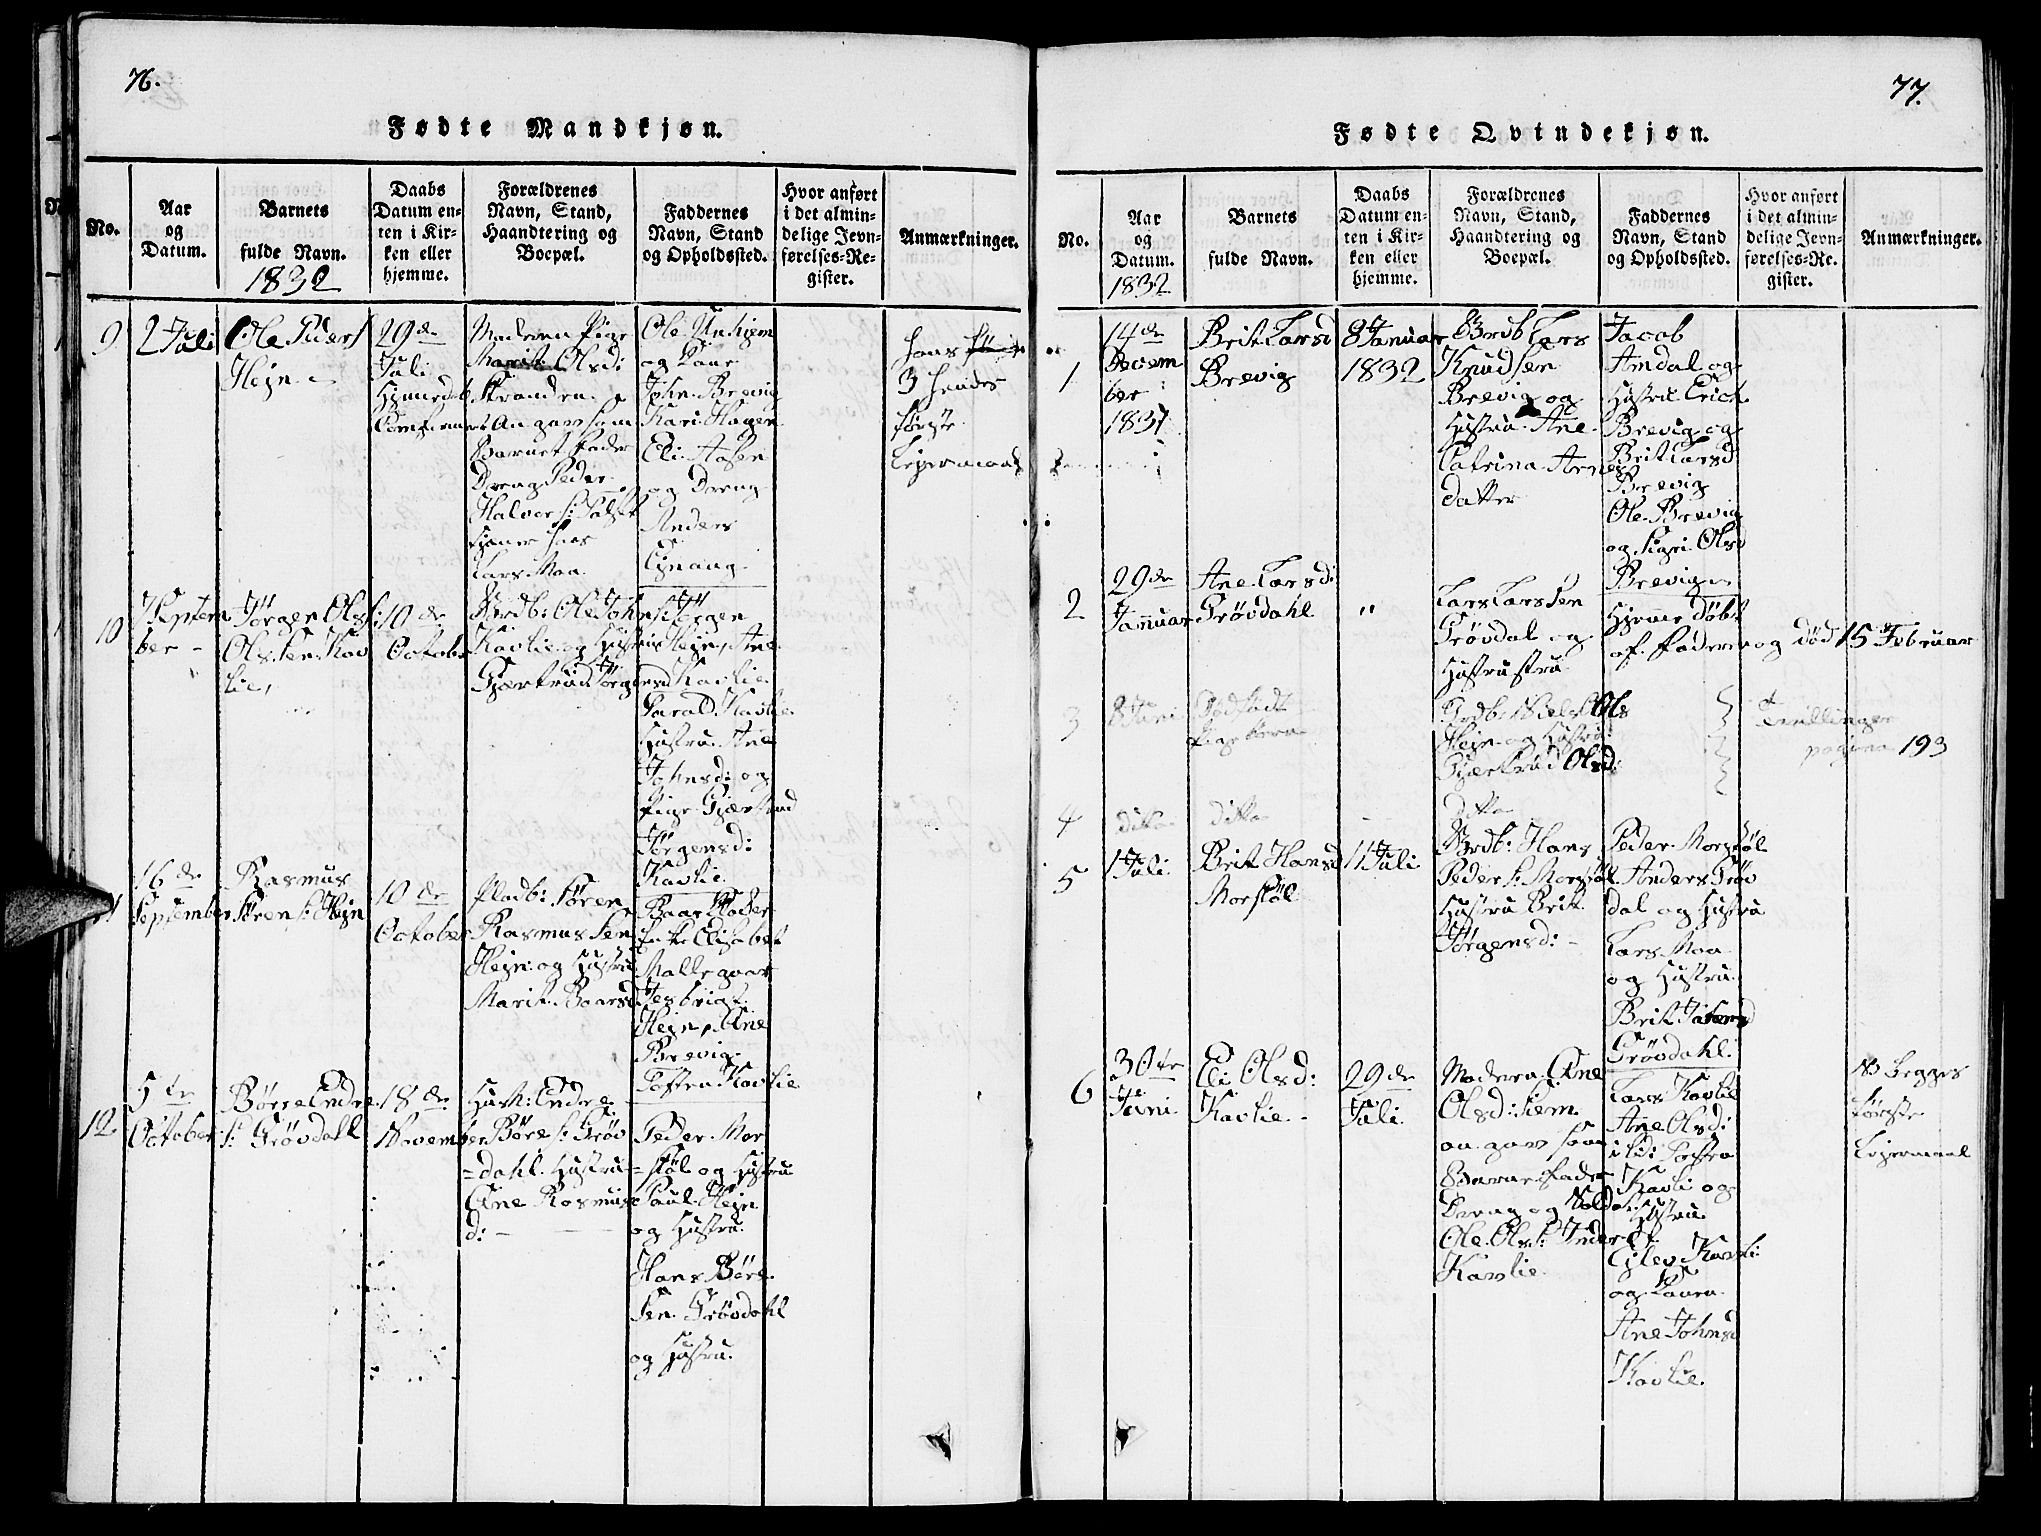 76.
Fødte Mandkjøn.
No.
Aar
og
Datum.
Barnets
fulde Navn.
1832
Daabs
Datum en-
ten i Kir-
ken eller
hjemme.
Forældrenes
Navn, Stand,
Haandtering og
Boepæl.
Faddernes
Navn, Stand
og Opholdssted.
Hvor anført
i det almin-
delige Jevn-
førelses-Re-
gister.
Anmærkninger.
9
2 Juli
Ole Peders
Hejn
29de
Juli
Moderen Pige
Marit Olsd:
Stranden
An gav som
Barnet Fader
Dreng Peder
Halvor s:
tjener hos
Lars Moa
Ole
og Kone
John Brevig
Kari Hagen
Eli Aasen
og Dreng
Anders
hans
3 hendes
første
Lejermaal
10
7 Septem
ber
Jørgen Ols s:
Olsten Kav
lie,
10de
Octobr
Grdb: Ole Johns:
Kavlie og Hustru
Gjærtrud Jørgensd
Jørgen
Hejn, Ane
Kavlie
Harald Kavlie
Hustru Ane
Johnsd: og
Pige Gjærtrud
Jørgensd:
Kavlie
11
16de
September
Rasmus
Søren s: Hejn
10de
October
Pladb: Søren
Rasmussen
Hejn og Hustru
Marit Baarsd
Elisabet
Mallegaar
Hejn, Ane
Brevig
Tosten Kavlie
12
5te
October
Børre Endre
s: Grøvdahl
18de
November
Husm: Endre
Børe s: Grøv
=dahl Hustru
Ane Rasmus
d:
Peder Mor
støl og Hustru
Paul Hejn
og Hustru
Hans Børe
Sen Grøvdahl
og Hustru.
77.
Fødte Qvindekjøn.
No.
Aar
og
Datum.
1832
Barnets
fulde Navn.
Daabs
Datum en-
ten i Kir-
ken eller
hjemme.
Forældrenes
Navn, Stand,
Haandtering og
Boepæl.
Faddernes
Navn, Stand
og Opholdssted.
Hvor anført
i det almin-
delige Jevn-
førelses-Re-
gister.
Anmærkninger.
1
14de
Decem
ber
1831
Brit Larsd
Brevig
8 Januar
1832
Grdb Lars
Knudsen
Brevig og
Hustru Ane
Catrina Arnes
datter
Jacob
Amdal og
Hustru Erick
Brevig og
Brit Larsd
Brevig
Ole Brevig
og Sigri Olsd
Brevig
2
29de
Januar
Ane Larsd:
Grøvdahl
"
Lars Larssen
Grøvdal og
Hustru
Hjemme døbt
af Faderen og død 15 Februar
3
8 Juni
Dødfødt
Pige
Grdb: Niels Ols
Hejn og Hustru
Gjertrud Olsd:
Tvillinger
pagina 193
4
ditto
ditto
ditto
5
1 Juli
Brit Hansd
Morstøl
11 Juli
Grdb: Hans
Peder s: Morstøl
Hustru Brit
Jørgensd:
Peder Morstøl
Anders Grøv
dal og Hustru
Lars Moa
og Hustru
Brit
Grøvdahl
6
30te
Juni
Eli Olsd:
Kavlie
29de
Juli
Moderen Ane
Olsd: Siem
an gav som
Barne fader
Dreng og Soldat
Ole Ols s: Inder
Kavlie
Lars Kavlie
Ane Olsd:
Tosten
Kavli og
Hustru
Ejlev Kavli
og Konen
Ane Johnsd
Kavlie.
NB begges
første
Lejermaal